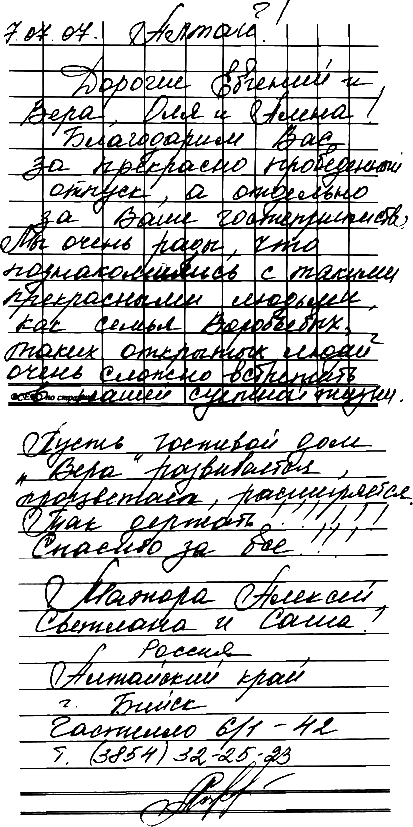 7.07.07. Алтай!
Дорогие Евгений и
Вера, Оля и Алена!
Благодарим Вас
за прекрасно проведенный
отпуск, а отдельно
за Ваше гостеприимство,
Мы очень рады, что
познакомились с такими
прекрасными людьми,
как семья Воробьевых,
таких открытых людей
очень сложно встретить
в нашей жизни.
Пусть гостевой дом
„Вера" развивается,
процветает, расширяется.
Так держать!!!!!!!
Спасибо за все!!!!
Алексей,
Светлана и Саша!
Россия
Алтайский край
г. Бийск
Гастелло 6/1 - 42
т. (3854) 32-25-23